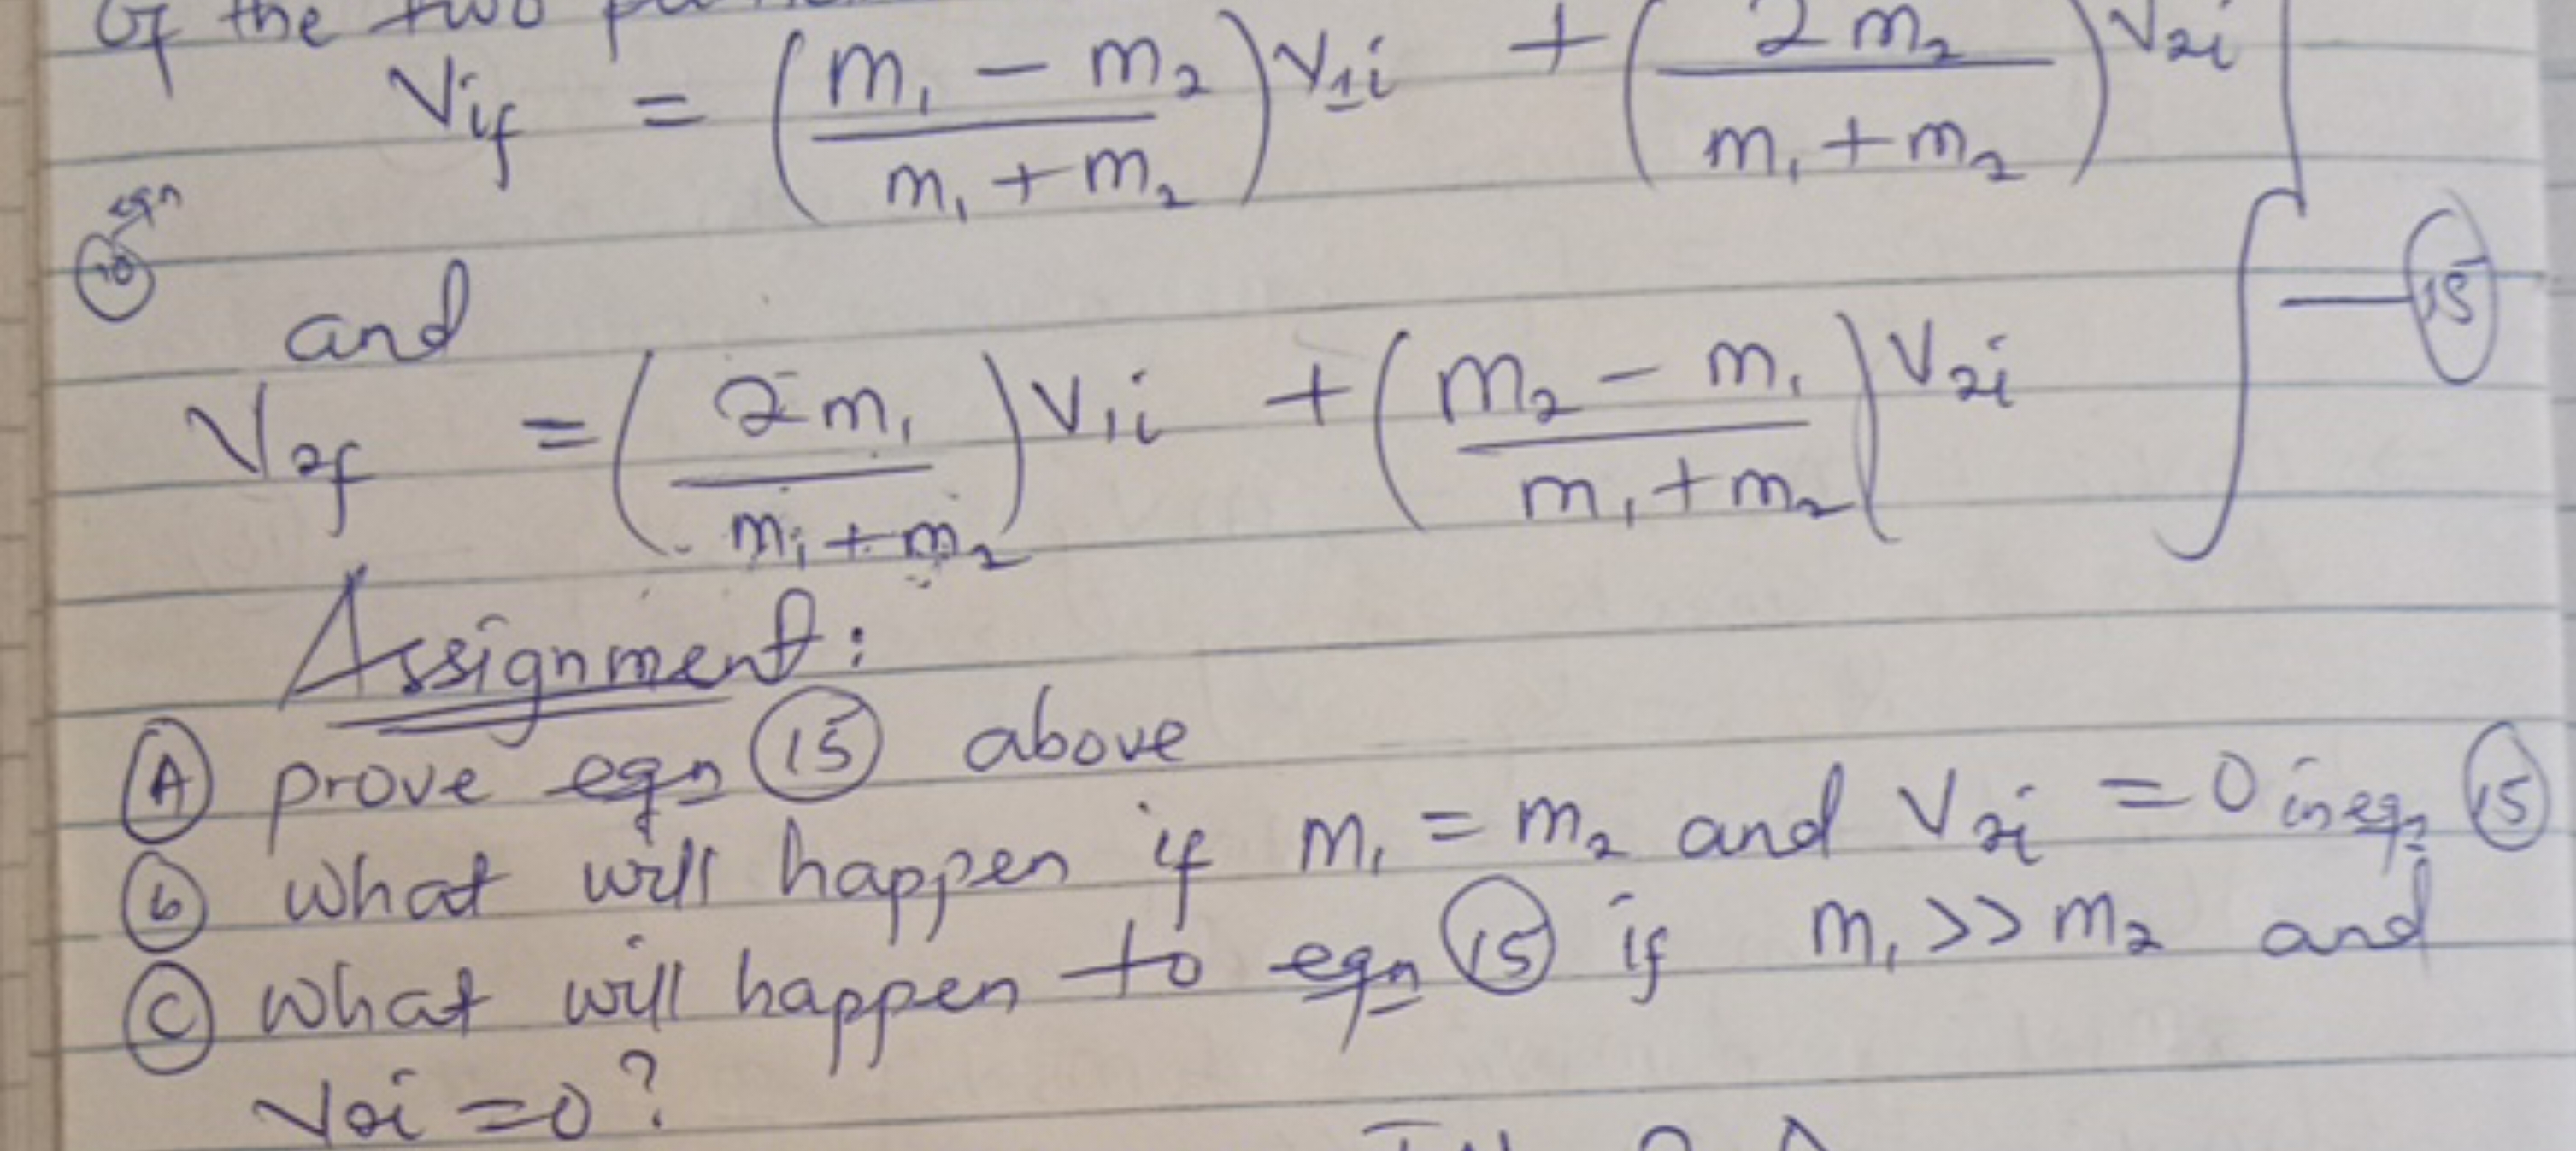 of the two
V1f = (m1 - m2 / m1 + m2) V1i + (2 m2 / m1 + m2) V2i
eqn
10
and
15
V2f = (2m1 / m1 + m2) V1i + (m2 - m1 / m1 + m2) V2i
Assignment:
A prove eqn 15 above
b What will happen if m1 = m2 and V2i = 0 in eqn 15
C What will happen to eqn 15 if m1 >> m2 and
V2i = 0?